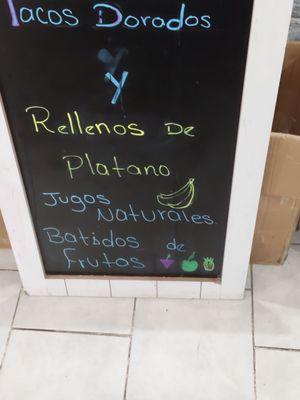 Tacos Dorados
Y
Rellenos De
Platano
Jugos
Naturales
Batidos de
frutos